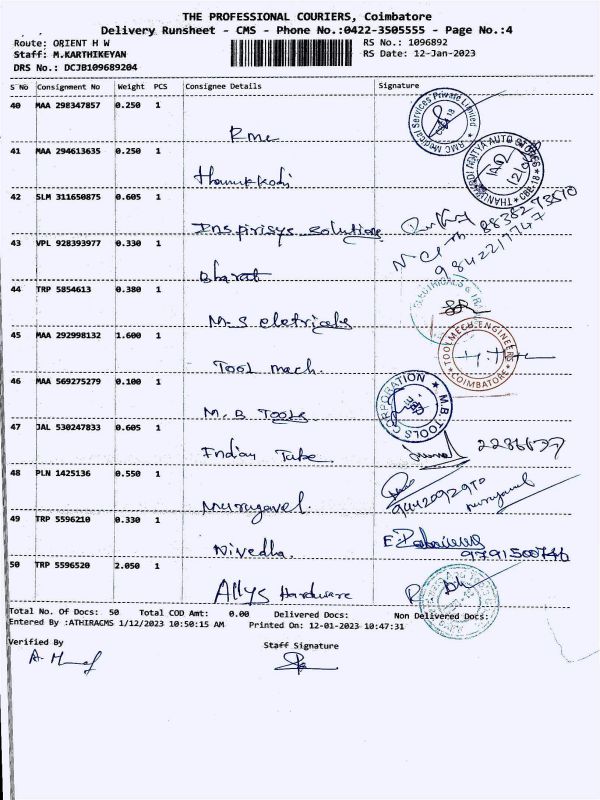 THE PROFESSIONAL COURIERS, Coimbatore
Delivery Runsheet - CMS - Phone No.:0422-3505555 - Page No.:4
Route: ORIENT H W
RS No.: 1096892
Staff: M.KARTHIKEYAN
RS Date: 12-Jan-2023
DRS No.: DCJB109689204
S No Consignment No Weight PCS Consignee Details Signature
40 MAA 298347857 0.250 1
RMC Medical Services Private Limited
41 MAA 294613635 0.250 1
AUTO
CBE-18
42 SLM 311650875 0.605 1
Inspirisys Solutions
43 VPL 928393977 0.330 1
Bharat
9842217747
44 TRP 5854613 0.380 1
M.S eletricals
ELECTRICALS &
45 MAA 292998132 1.600 1
Tool mach.
TOOLMECH ENGINEERS
COIMBATORE
46 MAA 569275279 0.100 1
M.B Tools
M.B. TOOLS CORPORATION
47 JAL 530247833 0.605 1
Indian Tube
48 PLN 1425136 0.550 1
Murugavel.
murugavel
49 TRP 5596210 0.330 1
Nivedha.
9791500746
50 TRP 5596520 2.050 1
Allys Hardware
Total No. Of Docs: 50 Total COD Amt: 0.00 Delivered Docs: Non Delivered Docs:
Entered By :ATHIRACMS 1/12/2023 10:50:15 AM Printed On: 12-01-2023 10:47:31
Verified By
Staff Signature